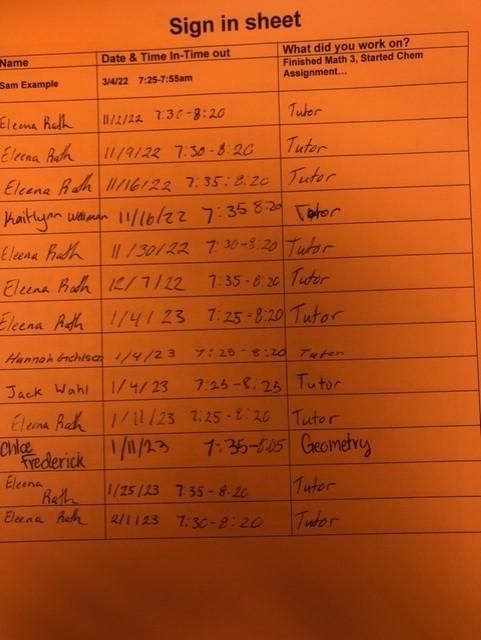 Sign in sheet
Name Date & Time In-Time out What did you work on?
Sam Example 3/4/22 7:25-7:55am Finished Math 3, Started Chem
Assignment...
Eleena Rath 11/2/22 7:30-8:20 Tutor
Eleena Rath 11/9/22 7:30-8:20 Tutor
Eleena Rath 11/16/22 7:35-8:20 Tutor
Kaitlynn Wellman 11/16/22 7:35 8:20 Tutor
Eleena Rath 11/30/22 7:30-8:20 Tutor
Eleena Rath 12/7/22 7:35-8:20 Tutor
Eleena Rath 1/4/23 7:25-8:20 Tutor
Hannah 1/4/23 7:25-8:20 Tutor
Jack Wahl 1/4/23 7:25-8:25 Tutor
Eleena Rath 1/11/23 7:25-8:20 Tutor
Chloe
Frederick 1/11/23 7:35-8:05 Geometry
Eleena
Rath 1/25/23 7:35-8:20 Tutor
Eleena Rath 2/1/23 7:30-8:20 Tutor